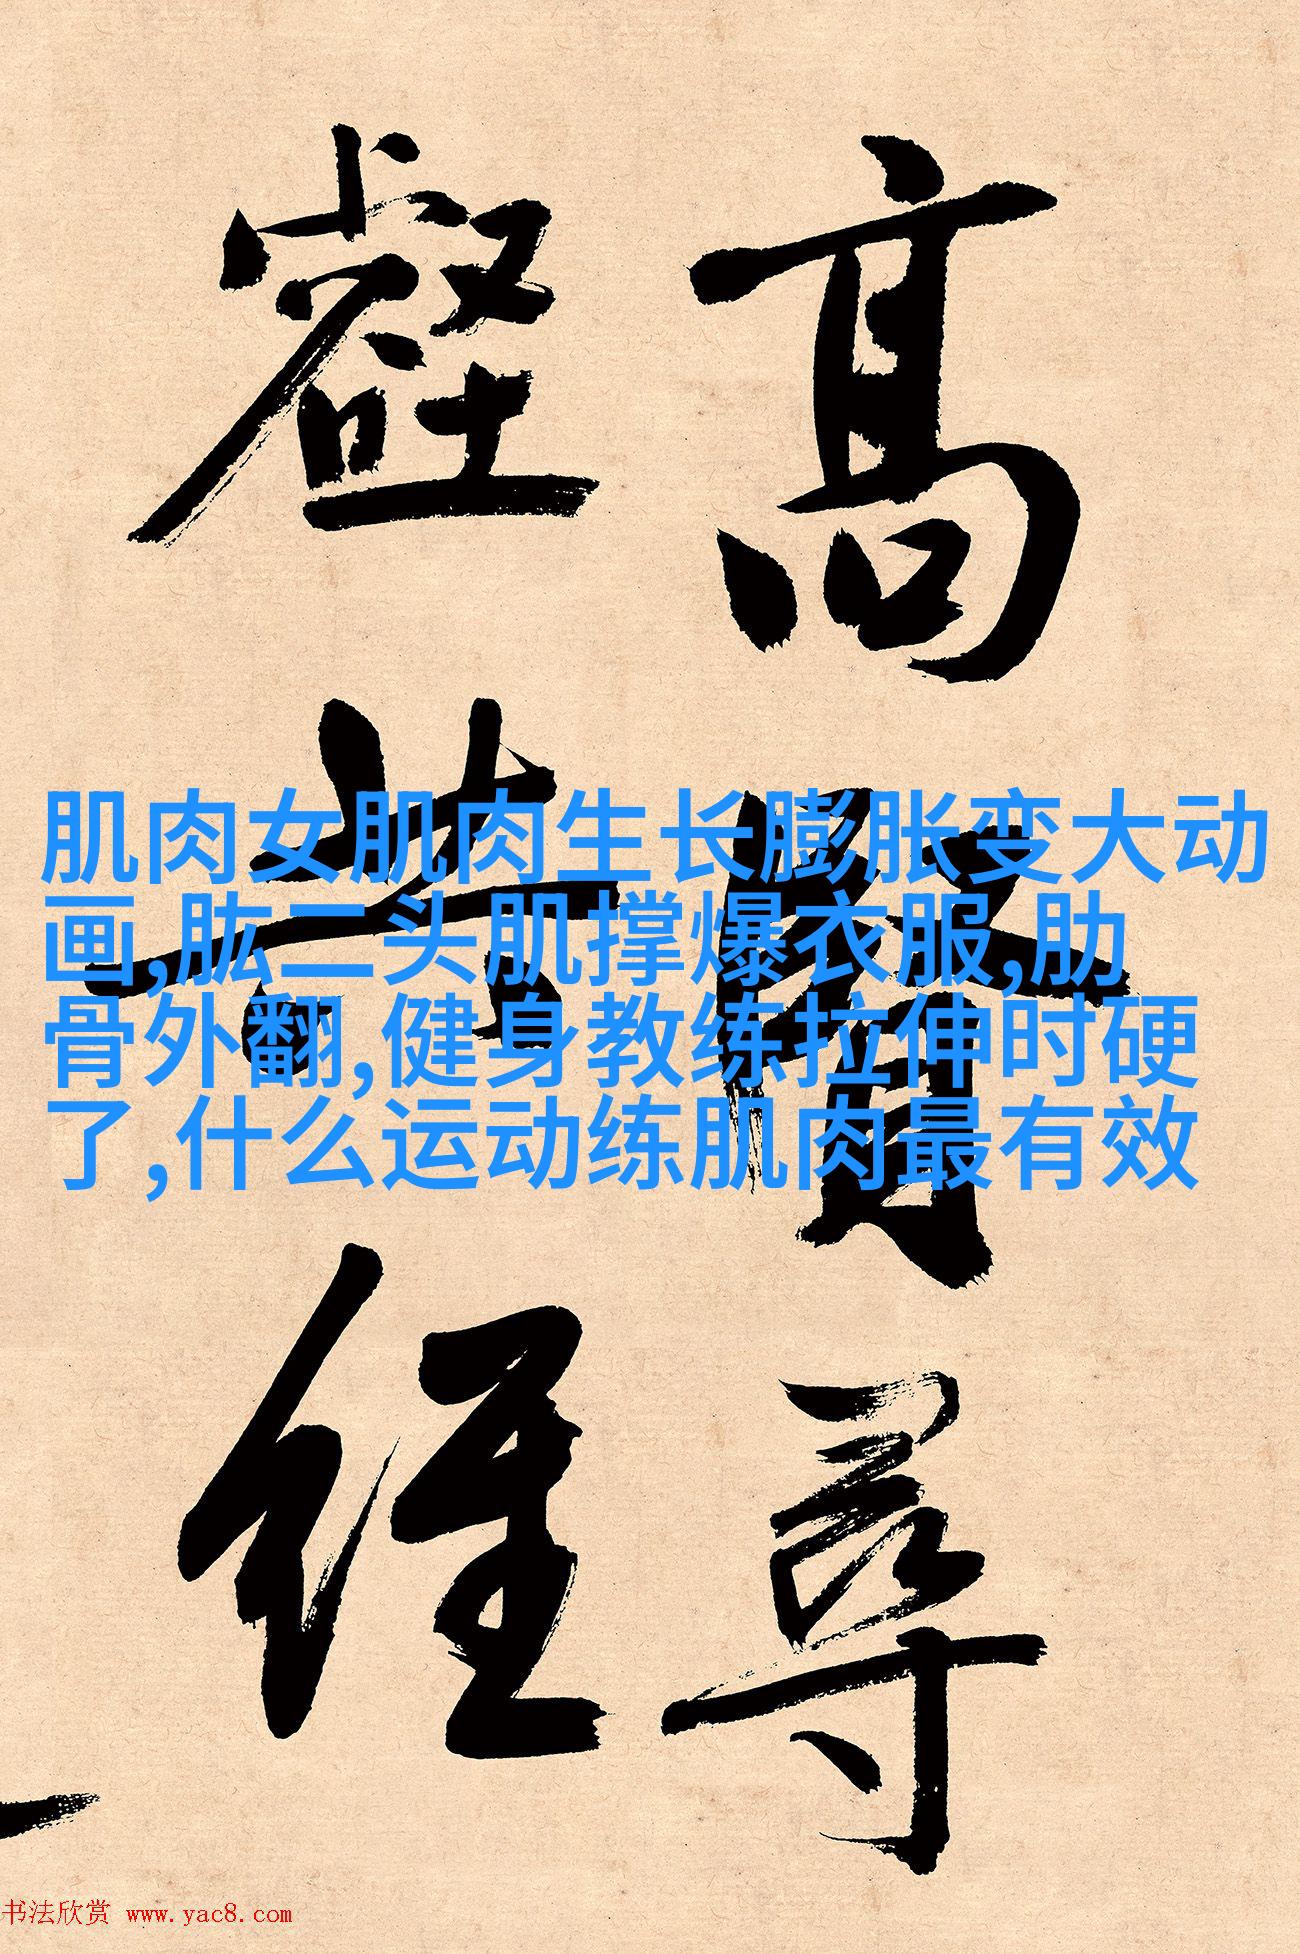 高賢尋
壑共經
肌肉女肌肉生长膨胀变大动
画,肱二头肌撑爆衣服,肋
骨外翻,健身教练拉伸时硬
了,什么运动练肌肉最有效
书法欣赏 www.yac8.com